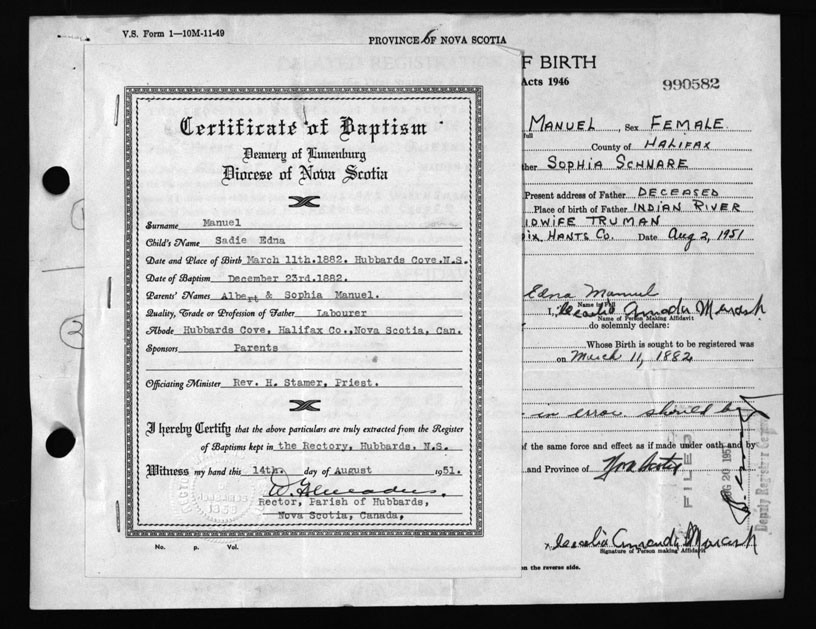 V.S. Form 1—10M-11-49
PROVINCE OF NOVA SCOTIA
F BIRTH
Acts 1946
990582
Certificate of Baptism
Deanery of Lunenburg
Diocese of Nova Scotia
Surname Manuel
Child's Name Sadie Edna
Date and Place of Birth March 11th.1882. Hubbards Cove.N.S.
Date of Baptism December 23rd.1882.
Parents' Names Albert & Sophia Manuel.
Quality, Trade or Profession of Father Labourer
Abode Hubbards Cove, Halifax Co.,Nova Scotia, Can.
Sponsors Parents
Officiating Minister Rev. H. Stamer, Priest.
I hereby Certify that the above particulars are truly extracted from the Register
of Baptisms kept in the Rectory, Hubbards. N.S.
Witness my hand this 14th. day of August 1951.
Rector, Parish of Hubbards,
Nova Scotia, Canada,
No. p. Vol.
MANUEL, Sex FEMALE
full
County of HALIFAX
ther SOPHIA SCHNARE
Present address of Father DECEASED
Place of birth of Father INDIAN RIVER
IDWIFE TRUMAN
HANTS CO. Date Aug 2, 1951
Edna Manuel
Name in Full
I, Amanda Marash
Name of Person Making Affidavit
do solemnly declare:
Whose Birth is sought to be registered was
on March 11, 1882
in error should be
of the same force and effect as if made under oath and by
and Province of Nova Scotia
FILED
20 195
Deputy Registrar Gen
Amanda Marash
Signature of Person making Affidavit
on the reverse side.
1
2